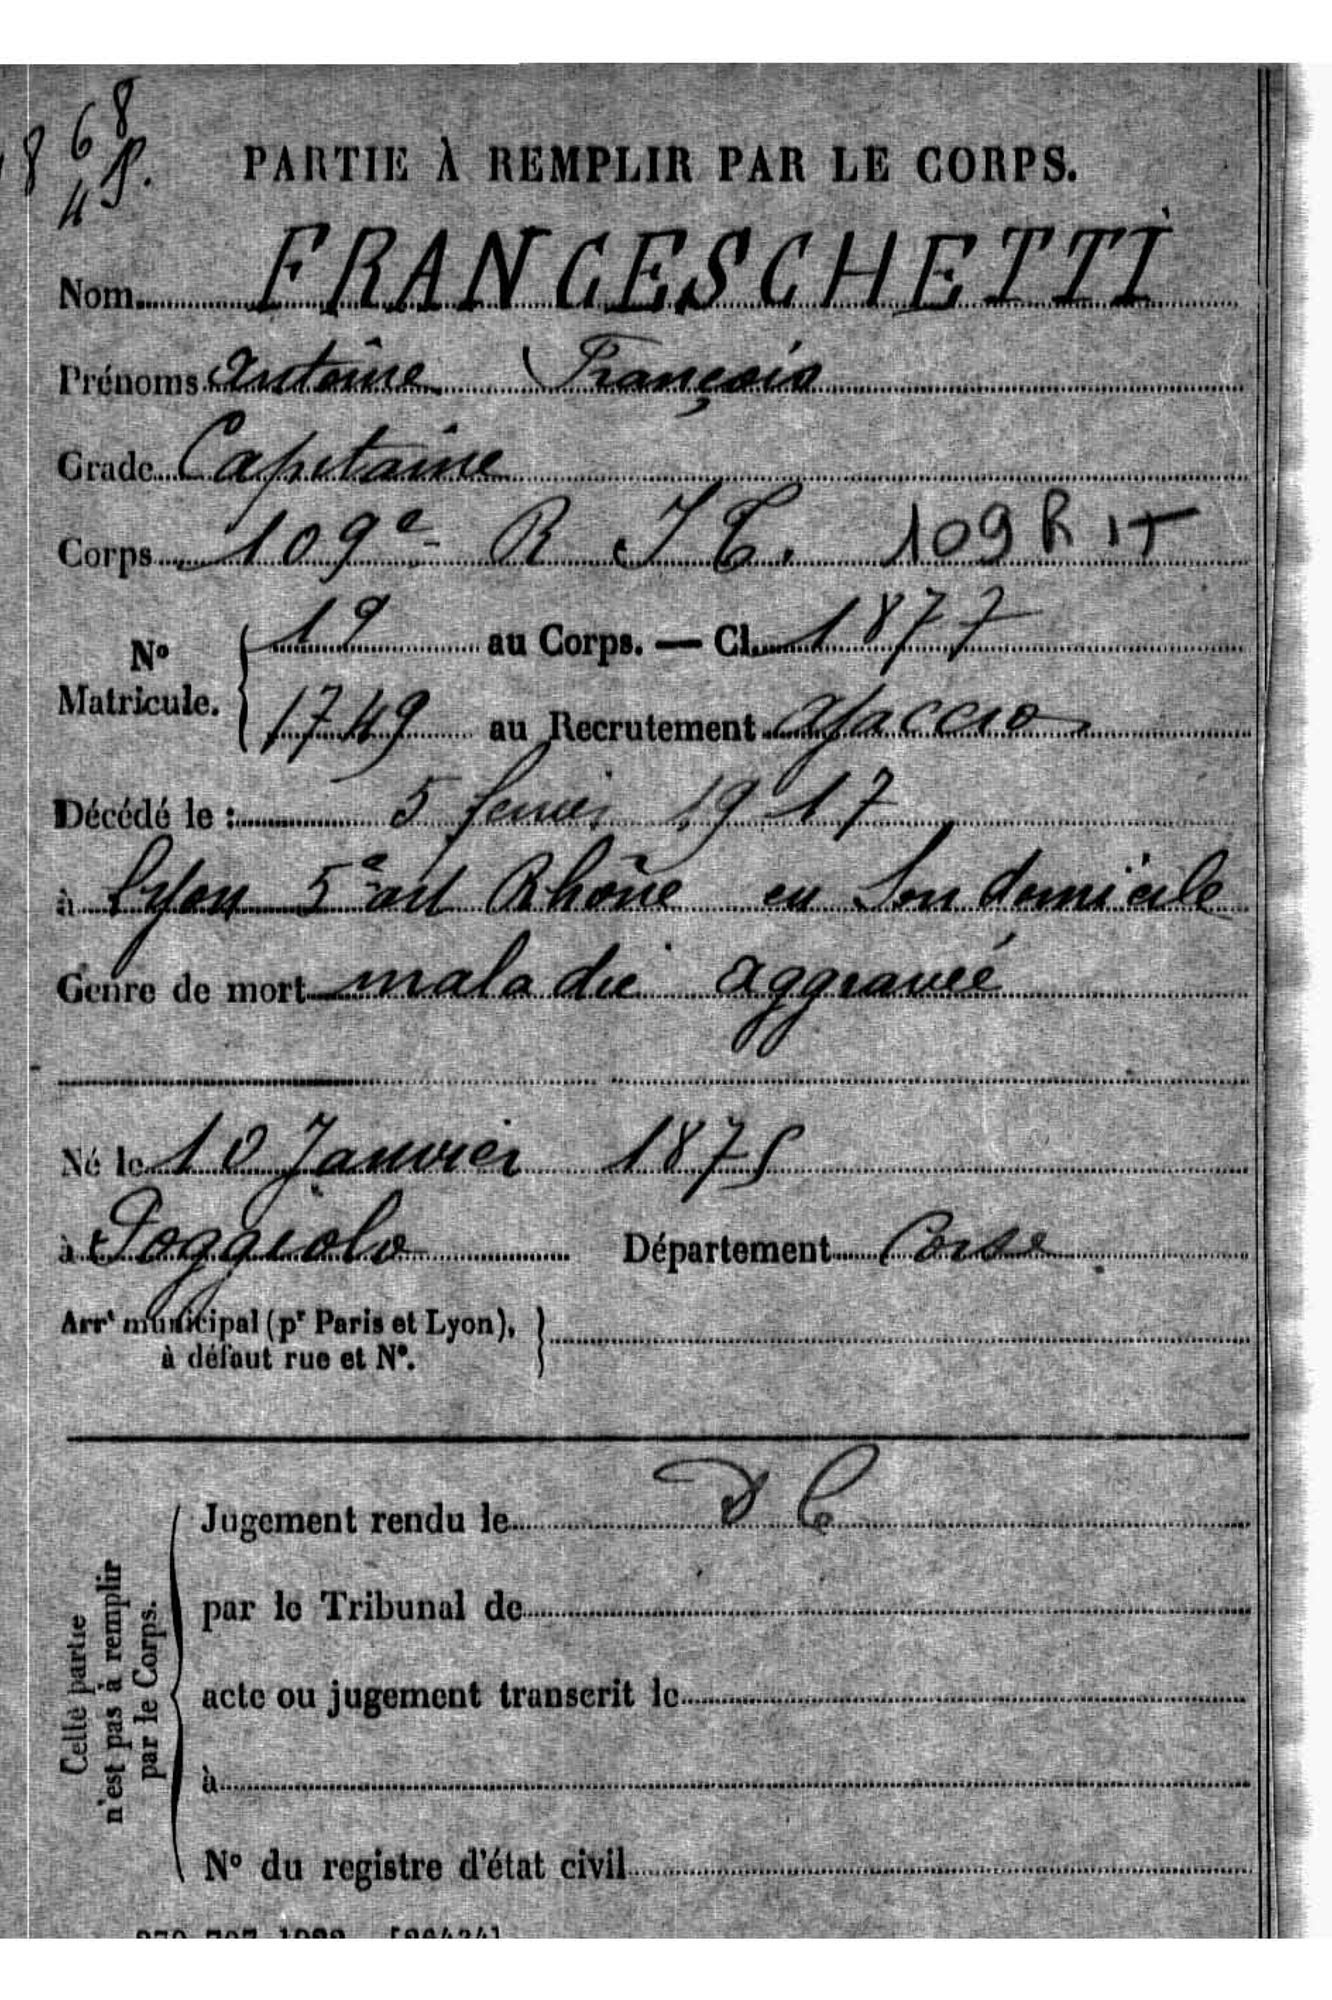 68
8 4 P.
PARTIE À REMPLIR PAR LE CORPS.
Nom FRANCESCHETTI
Prénoms Antoine François
Grade Capitaine
Corps 109e R I T. 109 R IT
N° Matricule. { 19 au Corps. — Cl. 1877
1749 au Recrutement Ajaccio
Décédé le : 5 fevrier 1917
à Lyon 5e art Rhône en son domicile
Genre de mort maladie aggravée
Né le 10 Janvier 1875
à Poggiolo Département Corse
Arrt municipal (pr Paris et Lyon), }
à défaut rue et N°.
Jugement rendu le D C
par le Tribunal de
acte ou jugement transcrit le
à
N° du registre d'état civil
Cette partie
n'est pas à remplir
par le Corps.